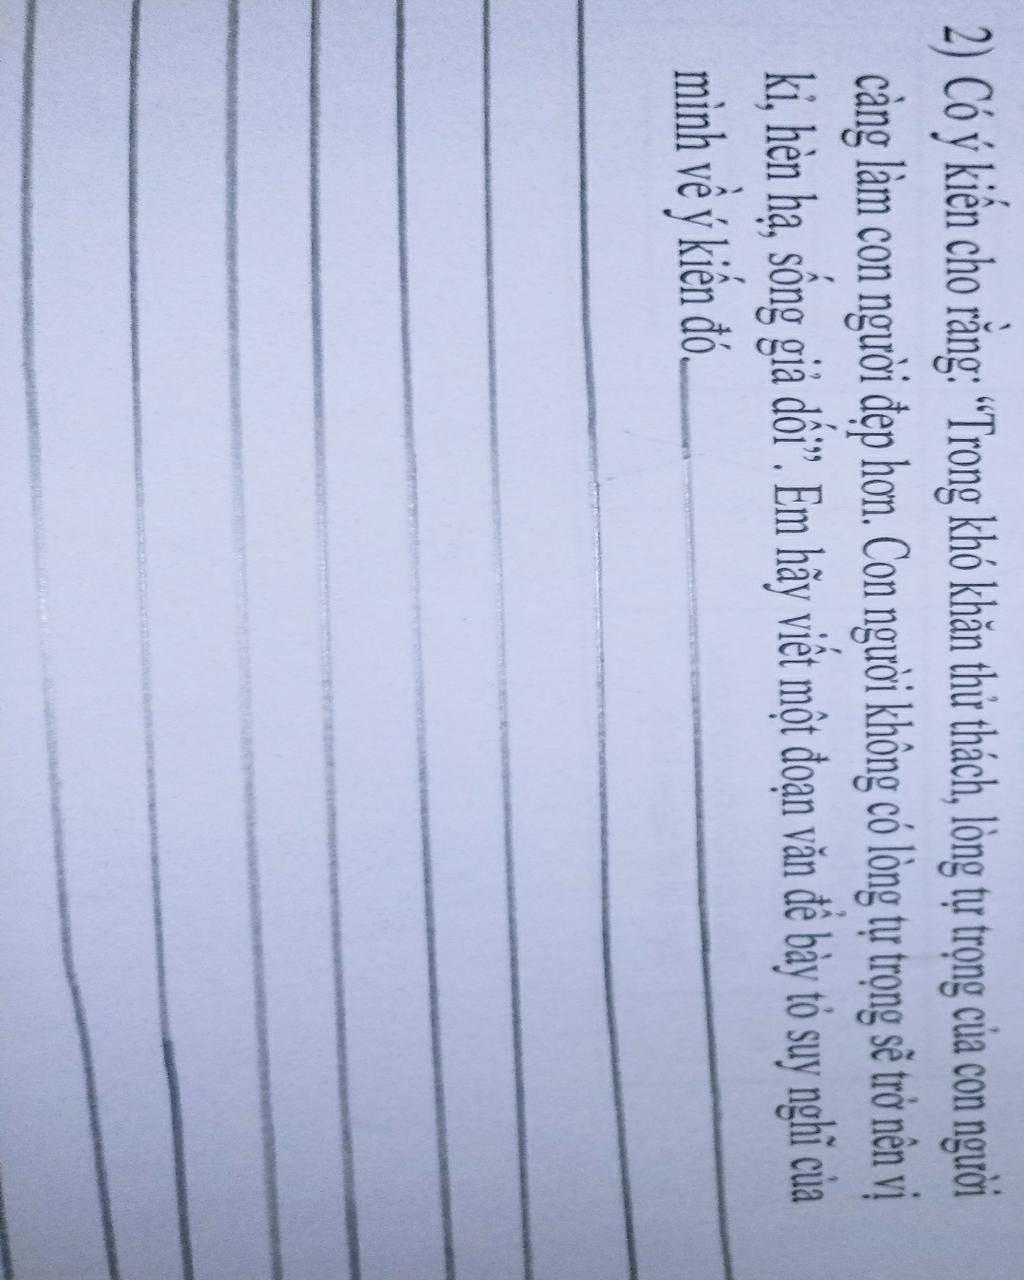 2) Có ý kiến cho rằng: “Trong khó khăn thử thách, lòng tự trọng của con người
càng làm con người đẹp hơn. Con người không có lòng tự trọng sẽ trở nên vị
kỉ, hèn hạ, sống giả dối”. Em hãy viết một đoạn văn để bày tỏ suy nghĩ của
mình về ý kiến đó.